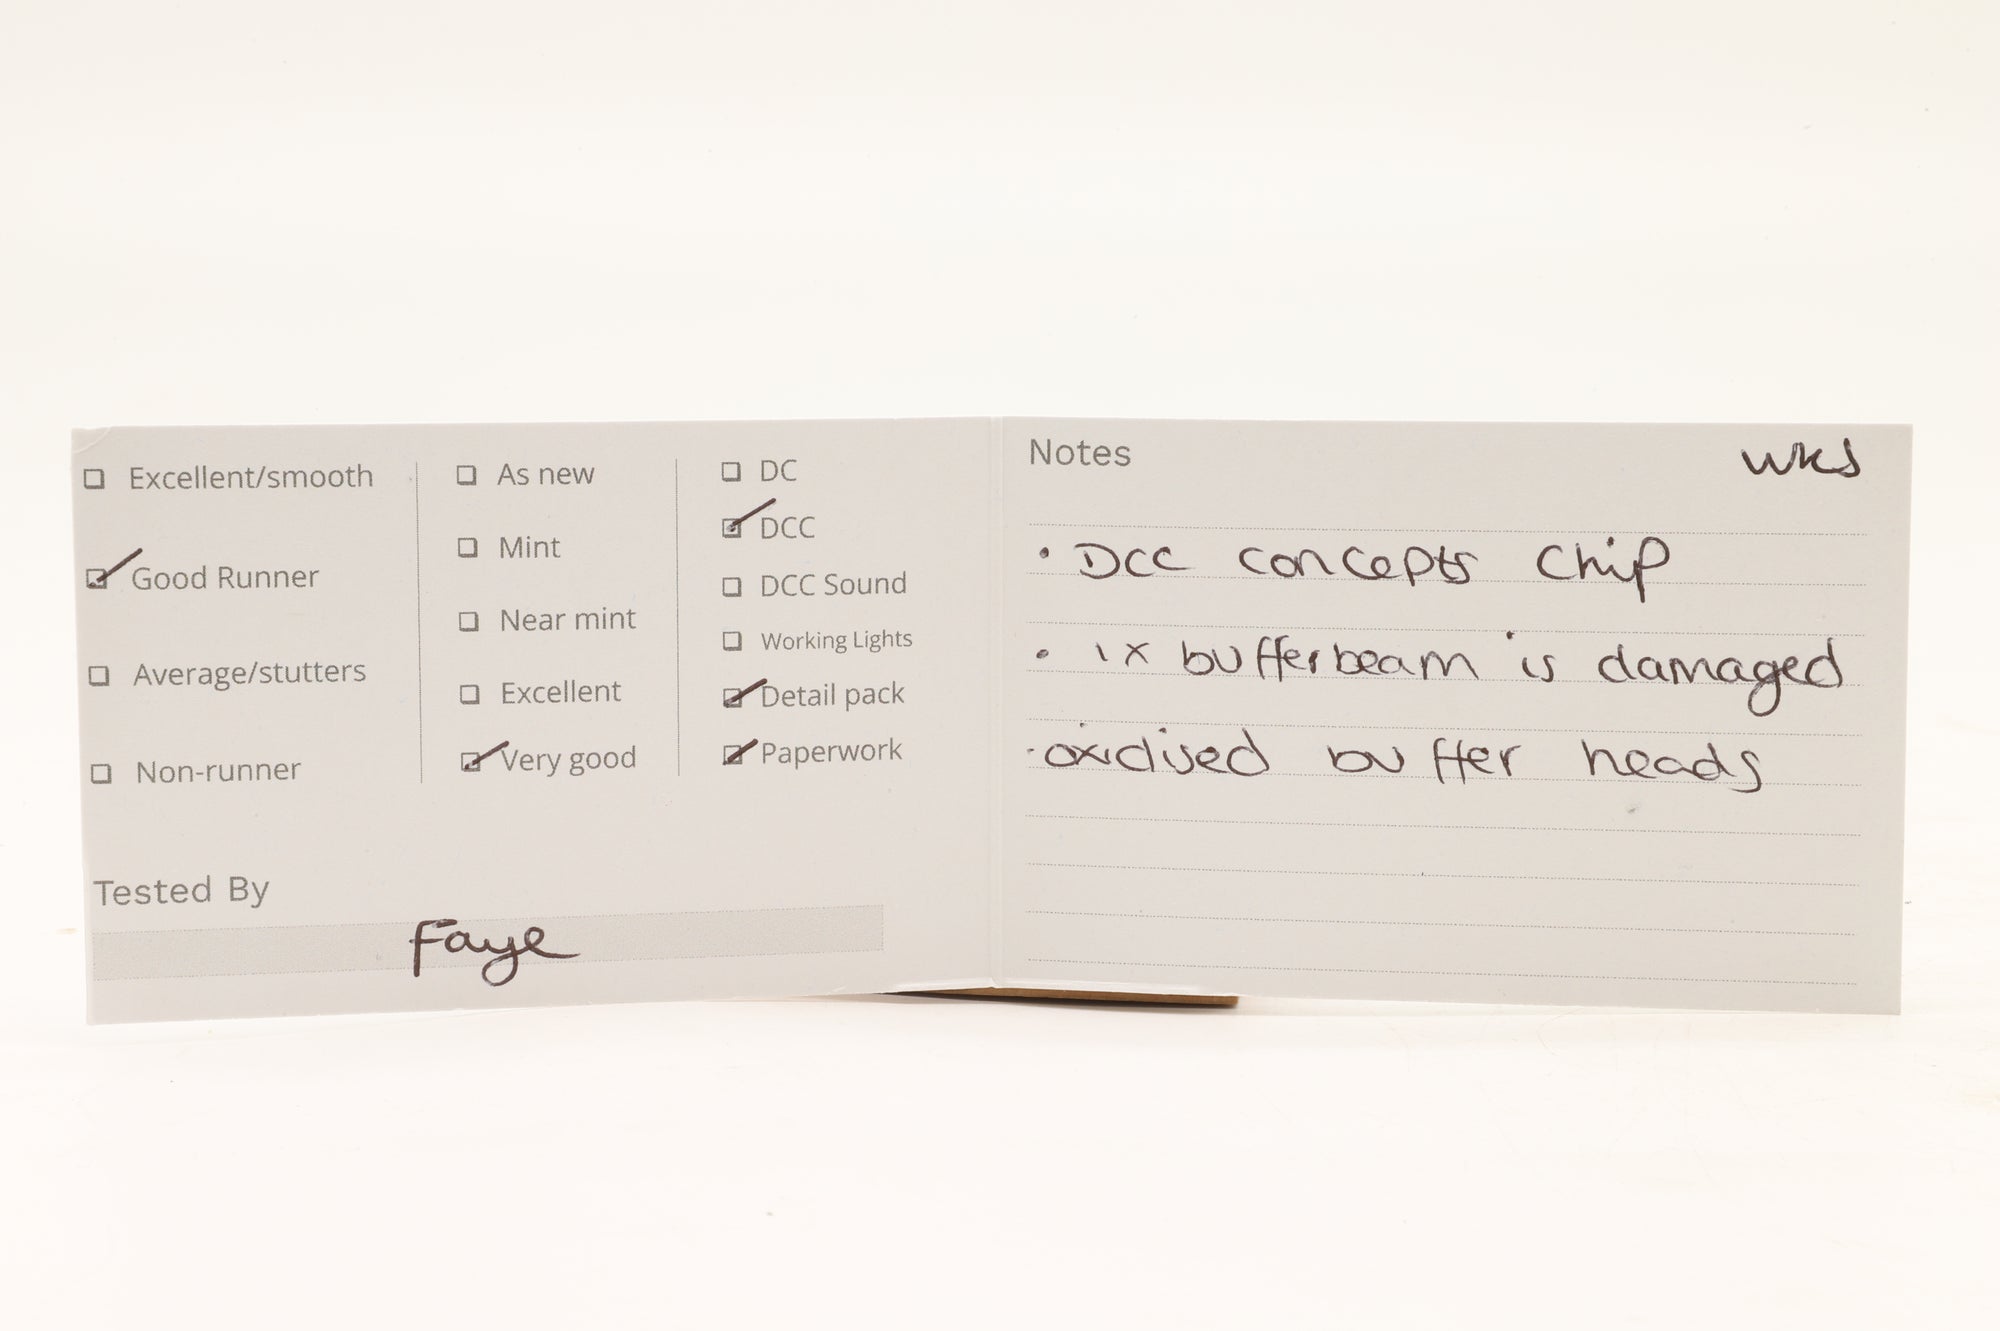 ☐ Excellent/smooth
☑ Good Runner
☐ Average/stutters
☐ Non-runner
☐ As new
☐ Mint
☐ Near mint
☐ Excellent
☑ Very good
☐ DC
☑ DCC
☐ DCC Sound
☐ Working Lights
☑ Detail pack
☑ Paperwork
Tested By
Faye
Notes
WKS
• DCC concepts chip
• 1x bufferbeam is damaged
• oxidised buffer heads